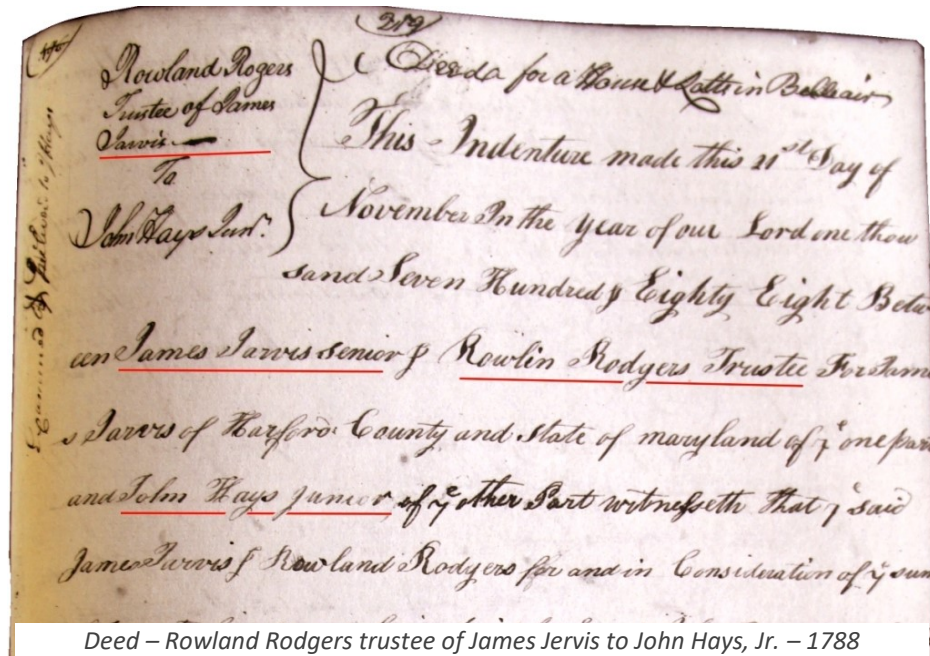 219
Rowland Rogers
Trustee of James
Jarvis
To
John Hays Junr.
Deed for a House & Lotts in Bellair
This Indenture made this 21st Day of
November In the Year of our Lord one thou
sand Seven Hundred & Eighty Eight Betw
een James Jarvis senior & Rowlin Rodgers Trustee For Jame
s Jarvis of Harford County and state of maryland of ye one part
and John Hays Junior of ye other Part witnesseth That ye said
James Jarvis & Rowland Rodgers for and in Consideration of ye sum
Examined &
Deed – Rowland Rodgers trustee of James Jervis to John Hays, Jr. – 1788